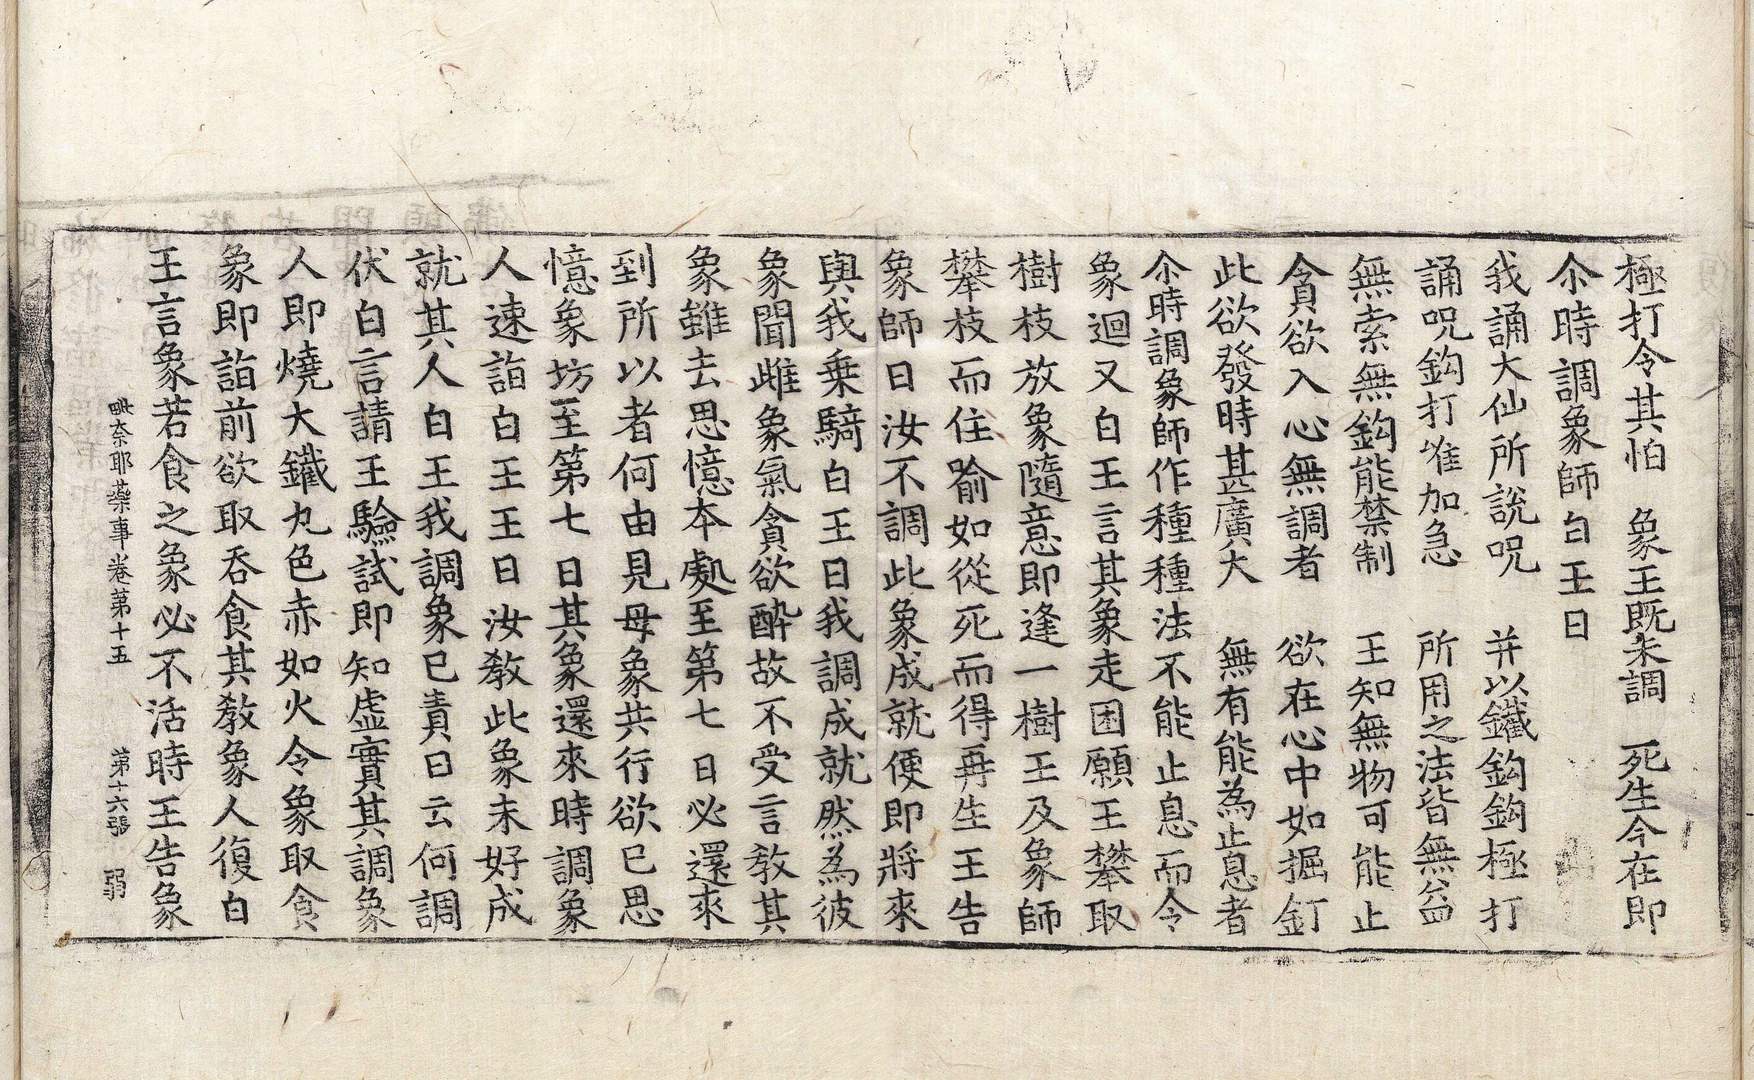 極打令其怕　象王旣未調　死生今在即
尒時調象師白王曰
我誦大仙所說呪　并以鐵鈎鈎極打
誦呪鈎打唯加急　所用之法皆無益
無索無鈎能禁制　王知無物可能止
貪欲入心無調者　欲在心中如掘釘
此欲發時甚廣大　無有能為止息者
尒時調象師作種種法不能止息而令
象迴又白王言其象走困願王攀取
樹枝放象隨意即逢一樹王及象師
攀枝而住喻如從死而得再生王告
象師曰汝不調此象成就便即將來
與我乗騎白王曰我調成就然為彼
象聞雌象氣貪欲酔故不受言教其
象雖去思憶本處至第七日必還來
到所以者何由見母象共行欲已思
憶象坊至第七日其象還來時調象
人速詣白王王曰汝教此象未好成
就其人白王我調象已責曰云何調
伏白言請王驗試即知虛實其調象
人即燒大鐵丸色赤如火令象取食
象即詣前欲取吞食其教象人復白
王言象若食之象必不活時王告象
毗奈耶藥事卷第十五　第十六張　弱